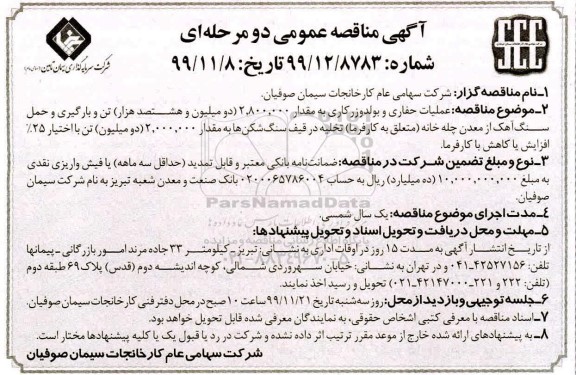 آگهی مناقصه عمومی دو مرحله‌ای
شماره: ۹۹/۱۲/۸۷۸۳ تاریخ: ۹۹/۱۱/۸
SCC
شرکت سرمایه‌گذاری سیمان تأمین
۱ـ نام مناقصه گزار: شرکت سهامی عام کارخانجات سیمان صوفیان.
۲ـ موضوع مناقصه: عملیات حفاری و بولدوزر کاری به مقدار ۲,۸۰۰,۰۰۰ (دو میلیون و هشتصد هزار) تن و بارگیری و حمل
سنگ آهک از معدن چله خانه (متعلق به کارفرما) تخلیه در قیف سنگ شکن‌ها به مقدار ۲,۰۰۰,۰۰۰ (دو میلیون) تن با اختیار ۲۵٪
افزایش یا کاهش با کارفرما.
۳ـ نوع و مبلغ تضمین شرکت در مناقصه: ضمانت‌نامه بانکی معتبر و قابل تمدید (حداقل سه ماهه) یا فیش واریزی نقدی
به مبلغ ۱۰,۰۰۰,۰۰۰,۰۰۰ (ده میلیارد) ریال به حساب ۰۲۰۰۰۶۵۷۸۶۰۰۴ بانک صنعت و معدن شعبه تبریز به نام شرکت سیمان
صوفیان.
۴ـ مدت اجرای موضوع مناقصه: یک سال شمسی.
۵ـ مهلت و محل دریافت و تحویل اسناد و تحویل پیشنهادها:
از تاریخ انتشار آگهی به مدت ۱۵ روز در اوقات اداری به نشانی: تبریز، کیلومتر ۳۳ جاده مرند امور بازرگانی ـ پیمانها
تلفن: ۴۲۵۲۷۱۵۶-۰۴۱ و در تهران به نشانی: خیابان سهروردی شمالی، کوچه اندیشه دوم (قدس) پلاک ۶۹ طبقه دوم
(تلفن: ۲۲۲ و ۲۲۱-۴۲۱۴۷۰۰۰-۰۲۱) تحویل و رسید اخذ نمایند.
۶ـ جلسه توجیهی و بازدید از محل: روز سه‌شنبه تاریخ ۹۹/۱۱/۲۱ ساعت ۱۰ صبح در محل دفتر فنی کارخانجات سیمان صوفیان.
۷ـ اسناد مناقصه با معرفی کتبی اشخاص حقوقی، به نمایندگان معرفی شده قابل تحویل خواهد بود.
۸ـ به پیشنهادهای ارائه شده خارج از موعد مقرر ترتیب اثر داده نشده و شرکت در رد یا قبول یک یا کلیه پیشنهادها مختار است.
شرکت سهامی عام کارخانجات سیمان صوفیان
ParsNamadData